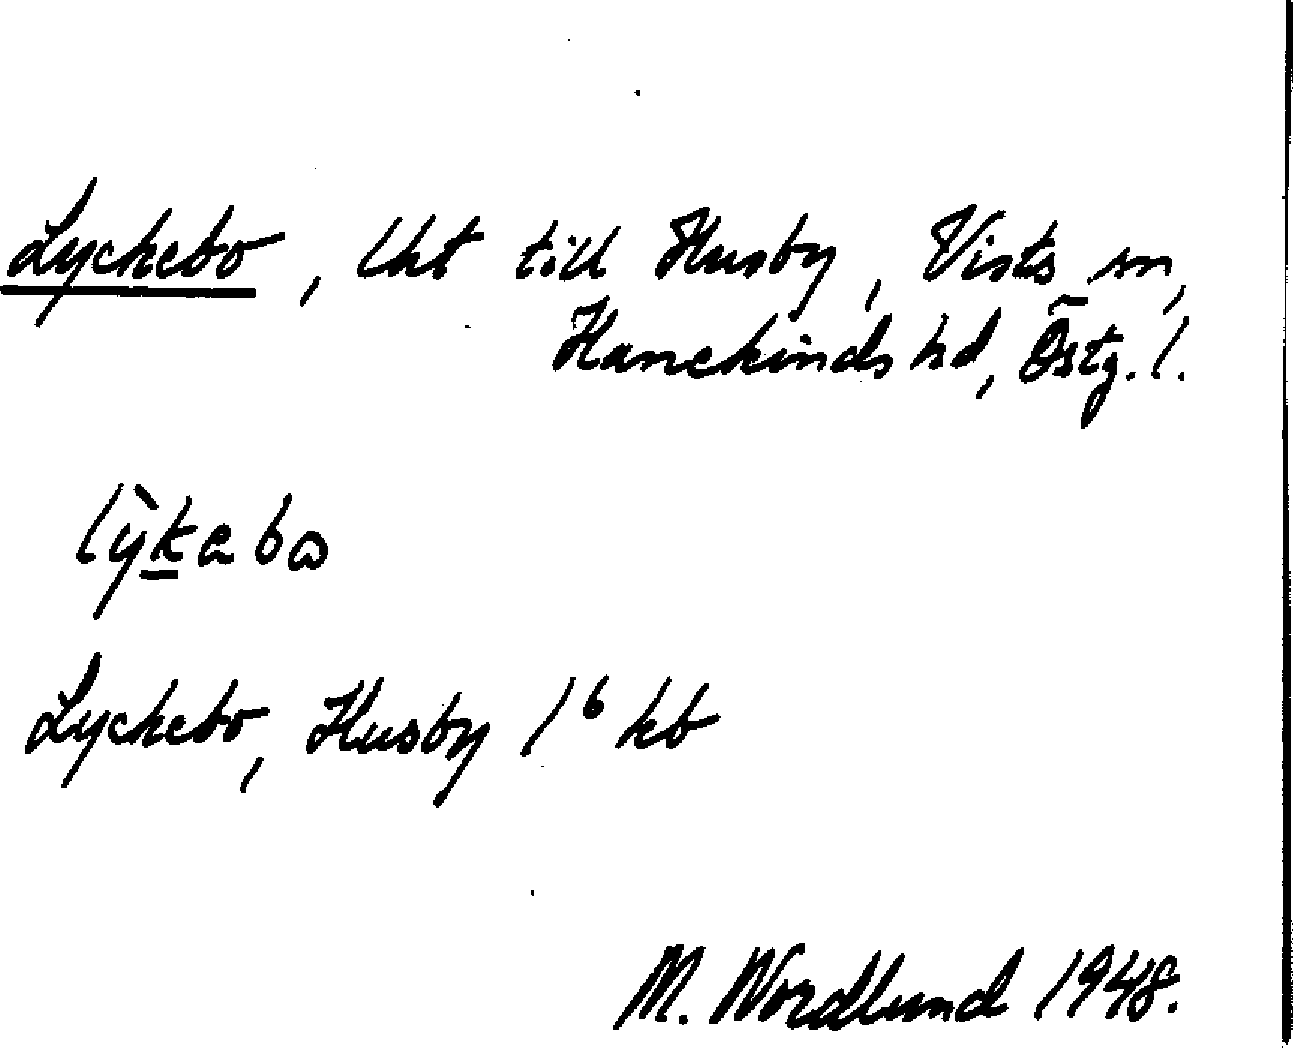 Lyckebo, lht till Husby, Vists sn,
Hanekinds hd, Östg. l.
lỳkabo
Lyckebo, Husby 1⁶ kb
M. Nordlund 1948.